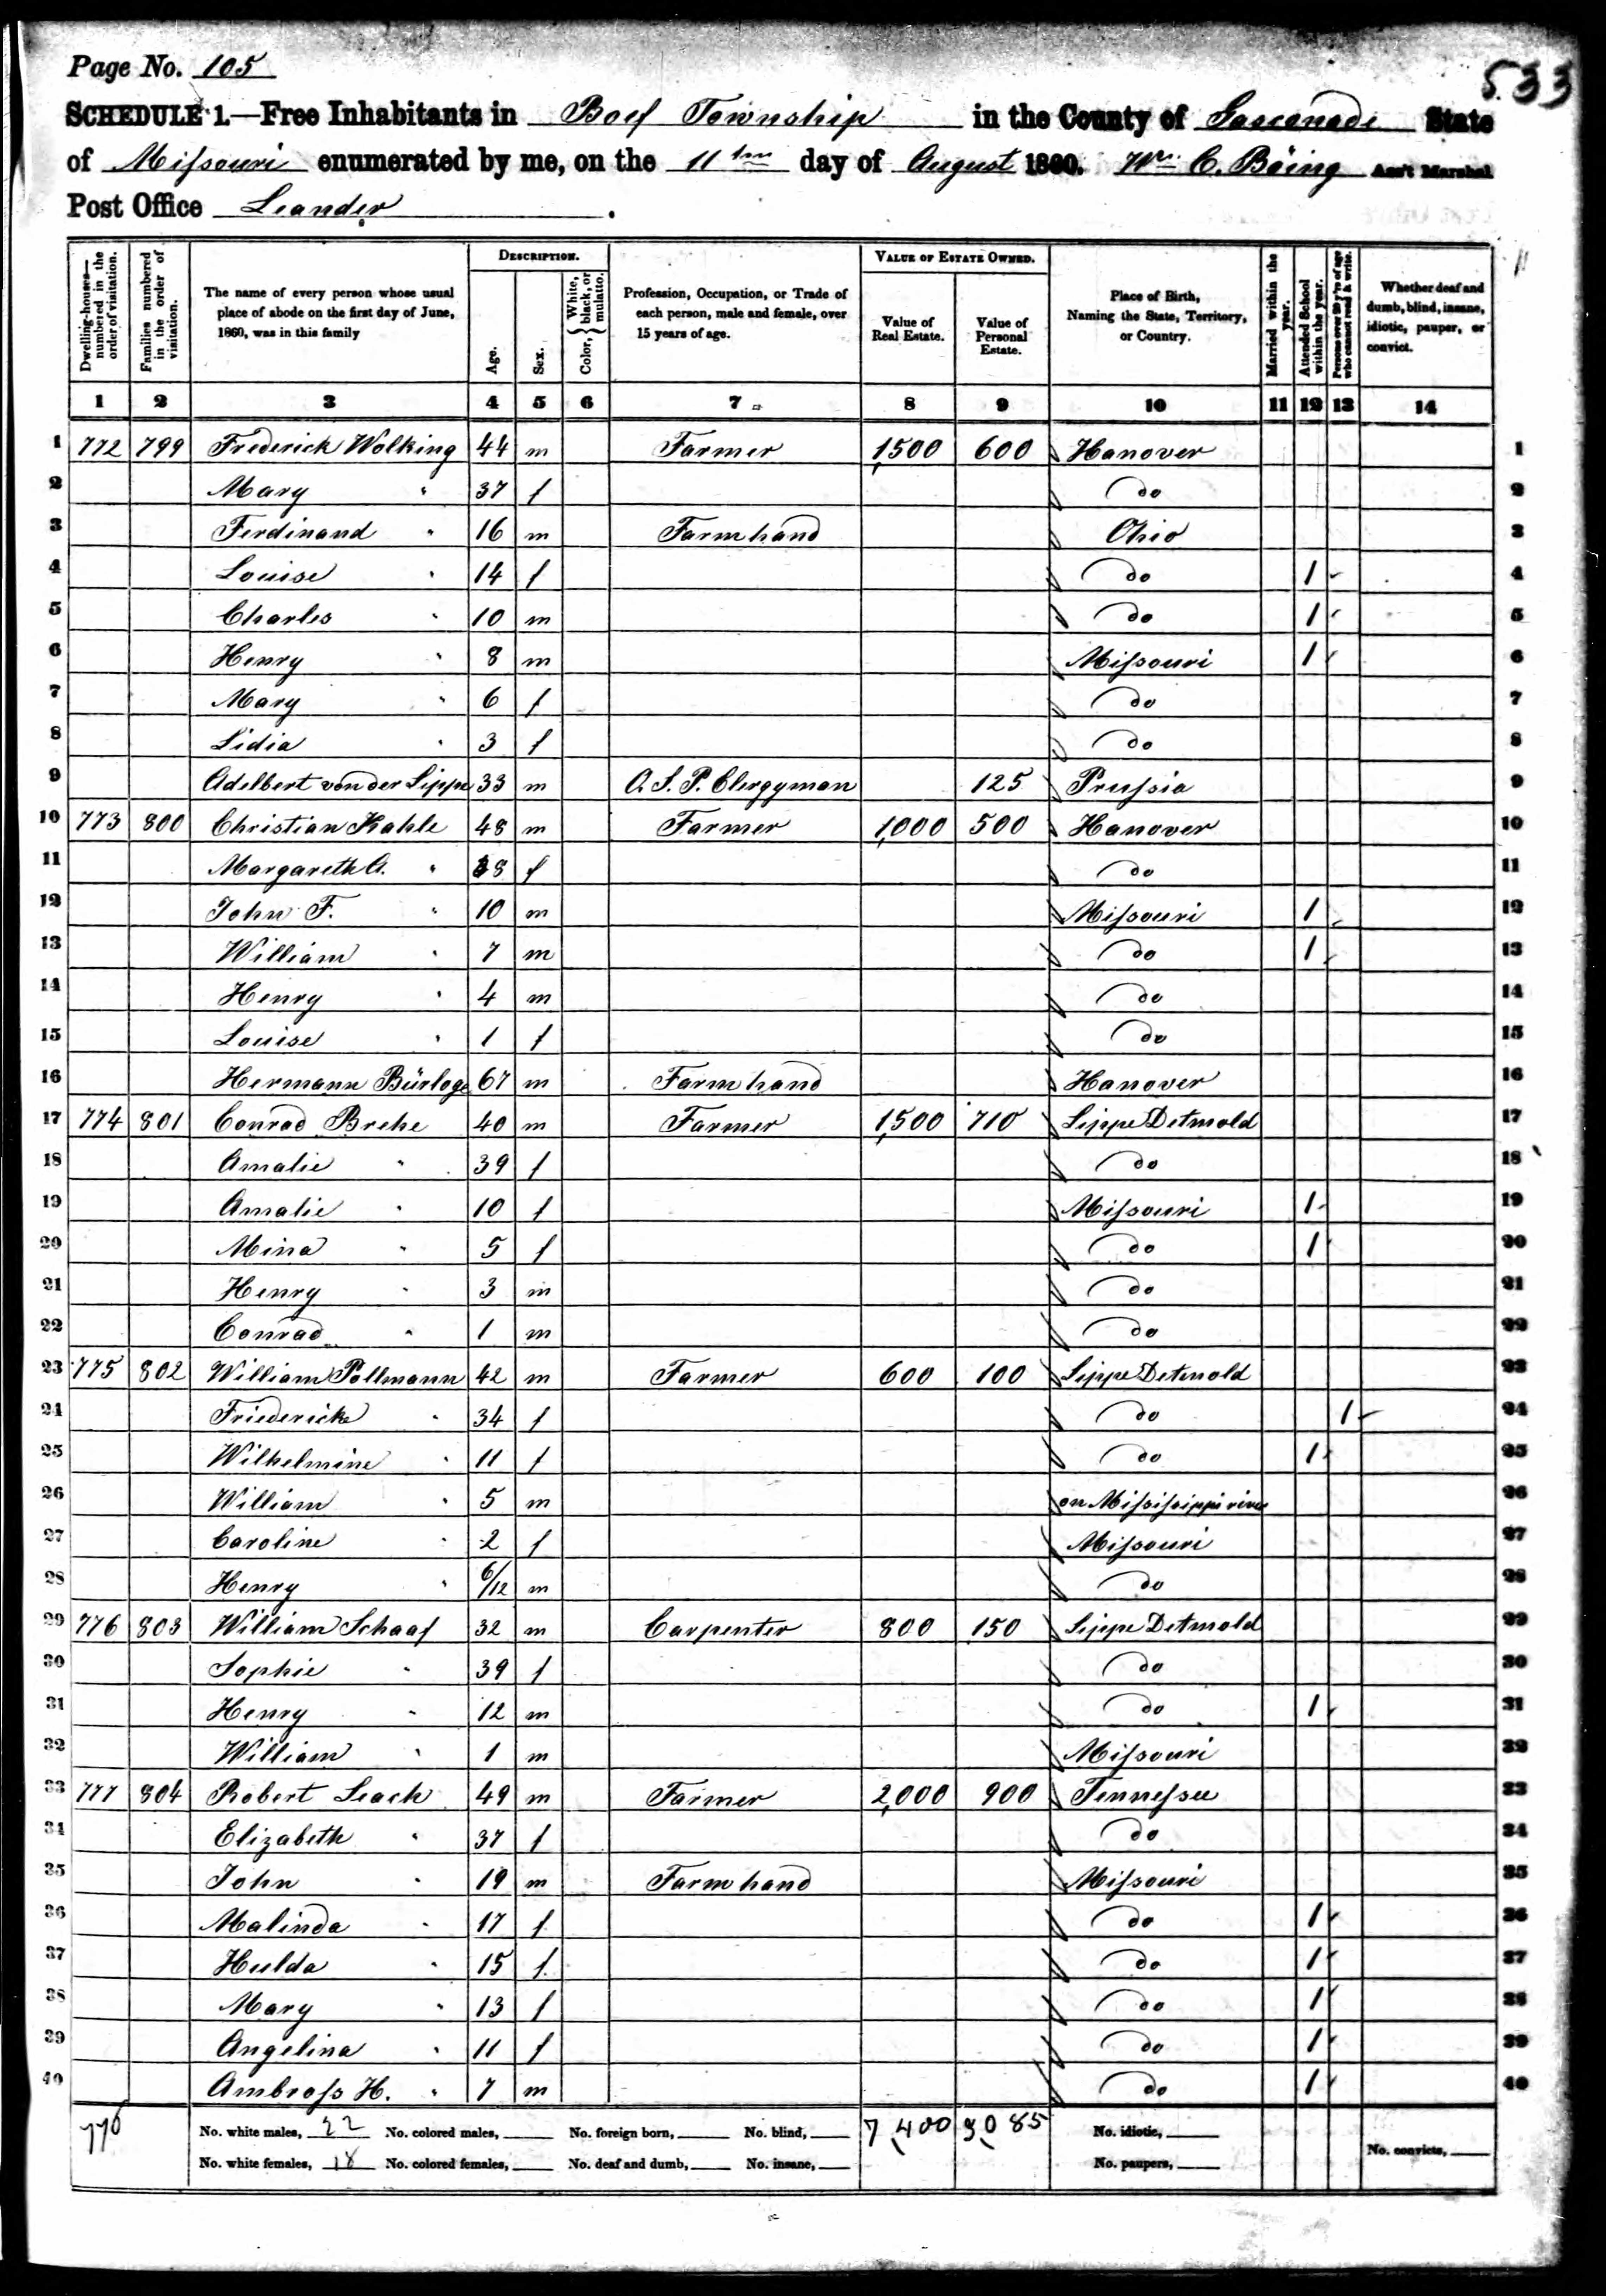 Page No. 105
533
SCHEDULE 1.—Free Inhabitants in Boef Township in the County of Gasconade State
of Missouri enumerated by me, on the 11th day of August 1860. Wm. C. Böing Ass't Marshal
Post Office Leander.
Dwelling-houses—numbered in the order of visitation.
Families numbered in the order of visitation.
The name of every person whose usual place of abode on the first day of June, 1860, was in this family
DESCRIPTION.
Age.
Sex.
Color, { White, black, or mulatto.
Profession, Occupation, or Trade of each person, male and female, over 15 years of age.
VALUE OF ESTATE OWNED.
Value of Real Estate.
Value of Personal Estate.
Place of Birth, Naming the State, Territory, or Country.
Married within the year.
Attended School within the year.
Persons over 20 y'rs of age who cannot read & write.
Whether deaf and dumb, blind, insane, idiotic, pauper, or convict.
1 2 3 4 5 6 7 8 9 10 11 12 13 14
1 772 799 Frederick Wolking 44 m Farmer 1,500 600 Hanover 1
2 Mary " 37 f do 2
3 Ferdinand " 16 m Farm hand Ohio 3
4 Louise " 14 f do 1 4
5 Charles " 10 m do 1 5
6 Henry " 8 m Missouri 1 6
7 Mary " 6 f do 7
8 Lidia " 3 f do 8
9 Adelbert von der Lippe 33 m O. S. P. Clergyman 125 Prussia 9
10 773 800 Christian Kahle 48 m Farmer 1,000 500 Hanover 10
11 Margareth A. " 38 f do 11
12 John F. " 10 m Missouri 1 12
13 William " 7 m do 1 13
14 Henry " 4 m do 14
15 Louise " 1 f do 15
16 Hermann Bürloge 67 m Farm hand Hanover 16
17 774 801 Conrad Brehe 40 m Farmer 1,500 710 Lippe Detmold 17
18 Amalie " 39 f do 18
19 Amalie " 10 f Missouri 1 19
20 Mina " 5 f do 1 20
21 Henry " 3 m do 21
22 Conrad " 1 m do 22
23 775 802 William Pollmann 42 m Farmer 600 100 Lippe Detmold 23
24 Friedericke " 34 f do 1 24
25 Wilhelmine " 11 f do 1 25
26 William " 5 m on Missisippi river 26
27 Caroline " 2 f Missouri 27
28 Henry " 6/12 m do 28
29 776 803 William Schaaf 32 m Carpenter 800 150 Lippe Detmold 29
30 Sophie " 39 f do 30
31 Henry " 12 m do 1 31
32 William " 1 m Missouri 32
33 777 804 Robert Leach 49 m Farmer 2,000 900 Tennessee 33
34 Elizabeth " 37 f do 34
35 John " 19 m Farm hand Missouri 35
36 Malinda " 17 f do 1 36
37 Hulda " 15 f do 1 37
38 Mary " 13 f do 1 38
39 Angelina " 11 f do 1 39
40 Ambross H. " 7 m do 1 40
776 No. white males, 22 No. colored males, No. foreign born, No. blind, 7,400 3,085 No. idiotic,
No. white females, 18 No. colored females, No. deaf and dumb, No. insane, No. paupers, No. convicts,